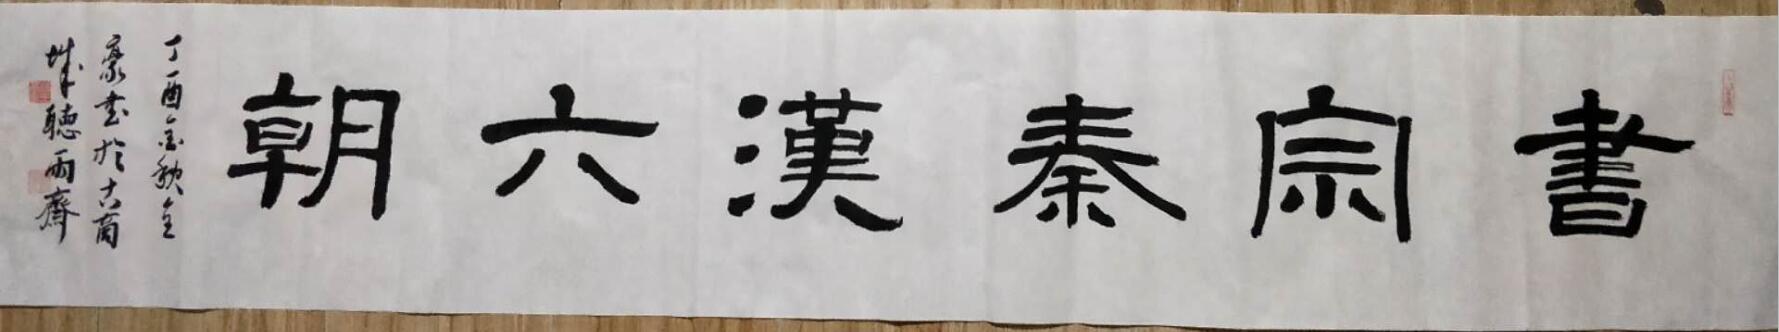 書宗秦漢六朝
丁酉金秋全
豪書於古商
城聽雨齋